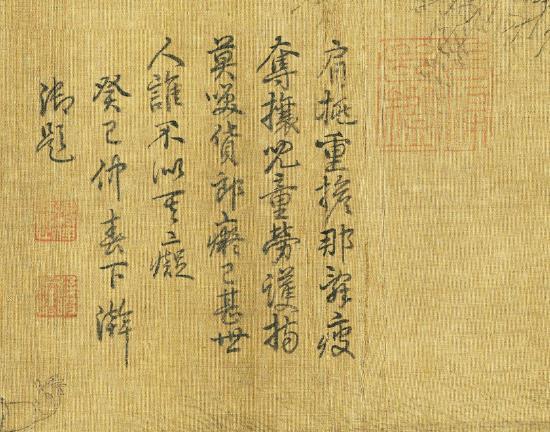 肩挑重擔那辭疲
奪攘兒童勞護持
莫咲貨郎癡已甚世
人誰不似其癡
癸巳仲春下澣
御題